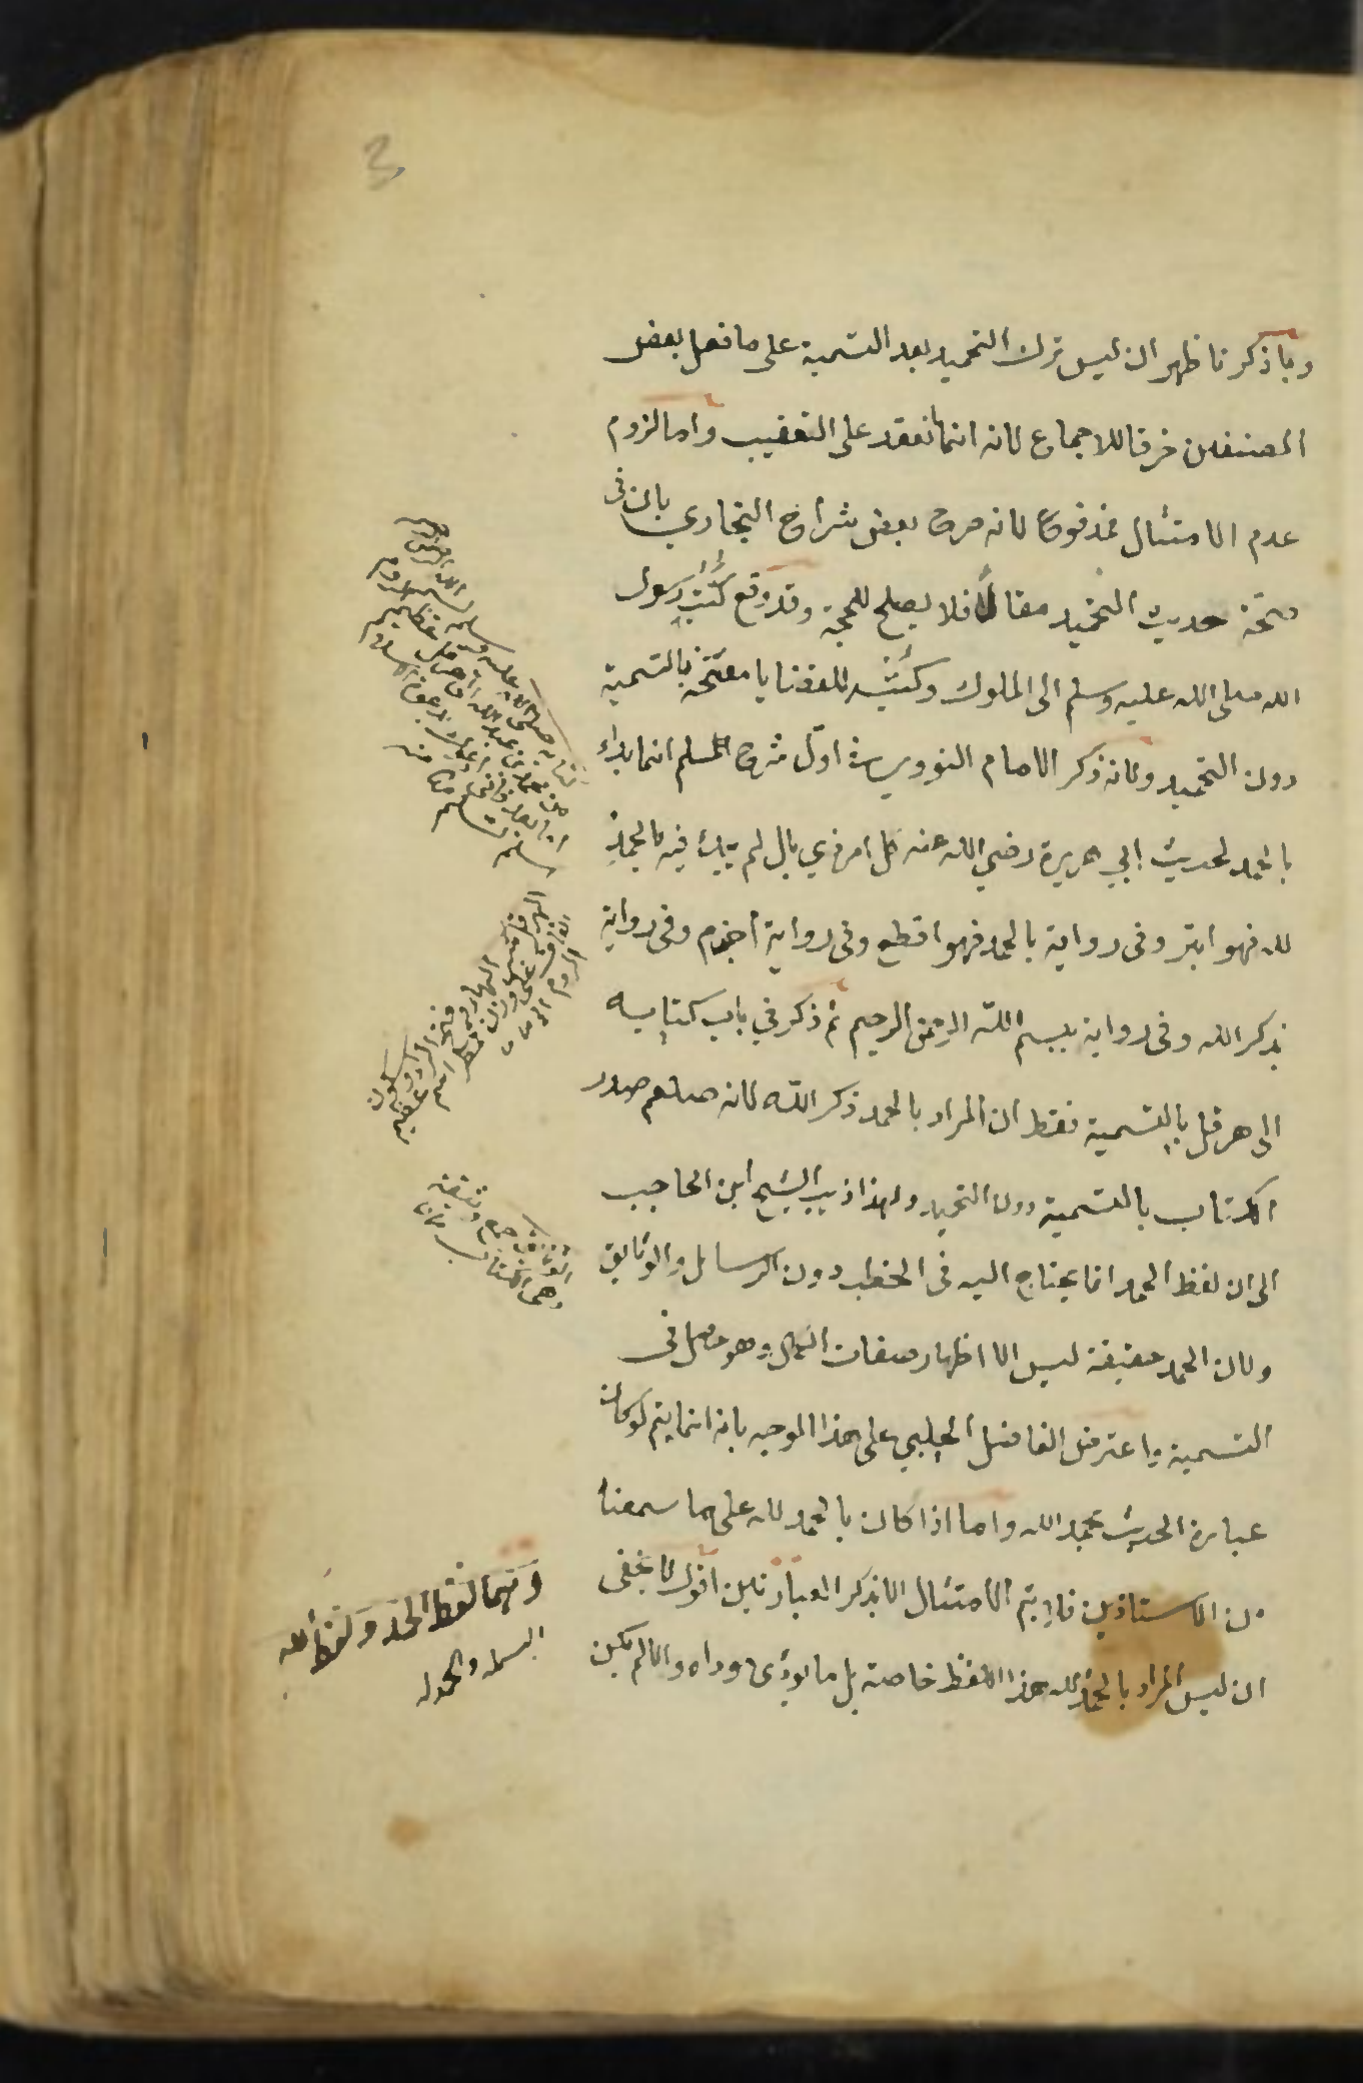 3
وبما ذكرنا ظهر ان ليس ترك التحميد بعد التسمية على ما فعل بعض
المصنفين خرقا للاجماع لانه انما انعقد على التعقيب واما لزوم
عدم الامتثال فمدفوع لانه صرح بعض شراح البخاري بان في
صحة حديث التحميد مقالا فلا يصلح للحجة وقد وقع كتب رسول
الله صلى الله عليه وسلم الى الملوك وكتبه للقضايا مفتتحة بالتسمية
دون التحميد ولانه ذكر الامام النووي في اول شرح المسلم انما بداء
بالحمد لحديث ابي هريرة رضي الله عنه كل امر ذي بال لم يبدأ فيه بالحمد
لله فهو ابتر وفى رواية بالحمد فهو اقطع وفى رواية اجذم وفى رواية
بذكر الله وفى رواية ببسم الله الرحمن الرحيم ثم ذكر في باب كتابه
الى هرقل بالتسمية فقط ان المراد بالحمد ذكر الله لانه صلعم صدر
الكتاب بالتسمية دون التحميد ولهذا ذهب الشيخ ابن الحاجب
الى ان لفظ الحمد انما يحتاج اليه فى الخطب دون الرسائل والوثايق
ولان الحمد حقيقة ليس الا اظهار صفات الكمال وهو حاصل فى
التسمية واعترض الفاضل الچلبي على هذا الوجه بانه انما يتم لو كان
عبارة الحديث بحمد الله واما اذا كان بالحمد لله على ما سمعنا
من الاستاذين فلا يتم الامتثال الا بذكر العبارتين اقول لا يخفى
ان ليس المراد بالحمد لله هذا اللفظ خاصة بل ما يؤدى مؤداه والا لم يكن
صلى الله عليه وسلم
من محمد عبد الله
الى هرقل عظيم الروم
اما بعد فانى ادعوك بدعوة الاسلام
اسلم تسلم
على وزن
اسم
الوثائق جمع وثيقة
وهى الكتاب
وهما لفظ الحمد ولفظ الله
البسملة والحمدلة